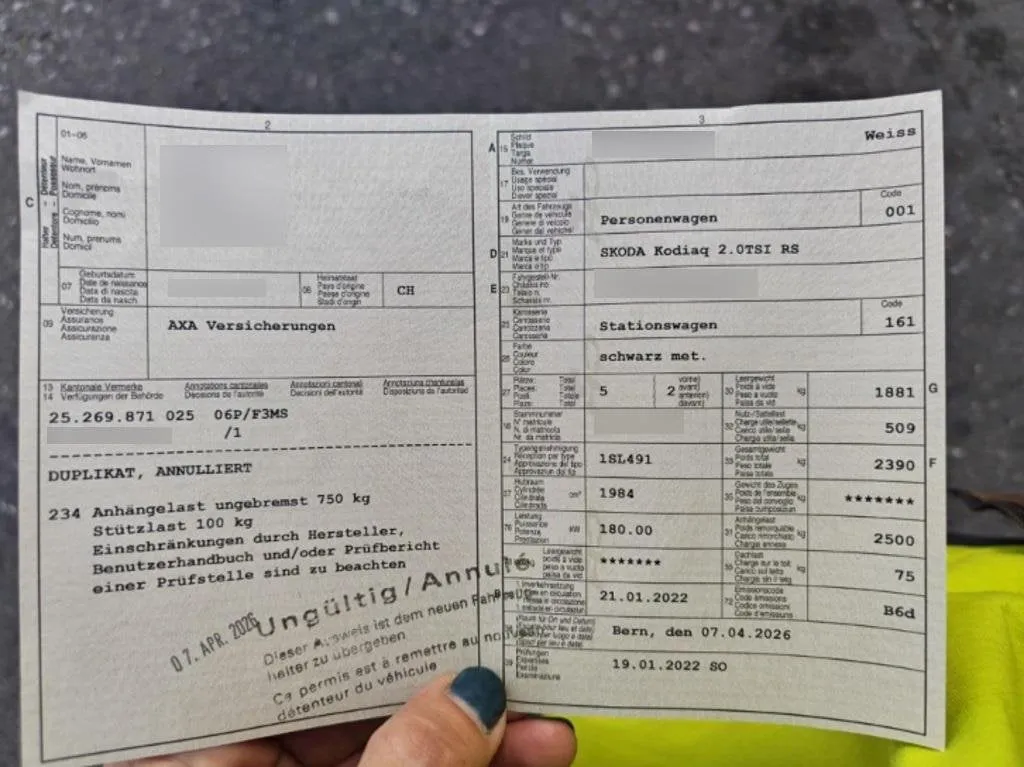 2
01-06
C
Halter - Détenteur
Detentore - Possessur
Name, Vornamen
Wohnort
Nom, prénoms
Domicile
Cognome, nomi
Domicilio
Num, prenums
Domicil
07
Geburtsdatum
Date de naissance
Data di nascita
Data da nasch.
08
Heimatstaat
Pays d'origine
Paese d'origine
Stadi d'origin
CH
09
Versicherung
Assurance
Assicurazione
Assicuranza
AXA Versicherungen
13 Kantonale Vermerke Annotations cantonales Annotazioni cantonali Annotaziuns chantunalas
14 Verfügungen der Behörde Décisions de l'autorité Decisioni dell'autorità Disposiziuns da l'autoritad
25.269.871 025 06P/F3MS
/1
DUPLIKAT, ANNULLIERT
234 Anhängelast ungebremst 750 kg
Stützlast 100 kg
Einschränkungen durch Hersteller,
Benutzerhandbuch und/oder Prüfbericht
einer Prüfstelle sind zu beachten
07. APR. 2026
Ungültig/Annulé
Dieser Ausweis ist dem neuen
halter zu übergeben
Ce permis est à remettre au nouveau
détenteur du véhicule
3
A 15
Schild
Plaque
Targa
Numer
Weiss
17
Bes. Verwendung
Usage spécial
Uso speciale
Diever spezial
19
Art des Fahrzeugs
Genre de véhicule
Genere di veicolo
Gener dal vehichel
Personenwagen
Code
001
D 21
Marke und Typ
Marque et type
Marca e tipo
Marca e tip
SKODA Kodiaq 2.0TSI RS
E 23
Fahrgestell-Nr.
Châssis no
Telaio n.
Schassis nr.
25
Karosserie
Carrosserie
Carrozzeria
Carossaria
Stationswagen
Code
161
26
Farbe
Couleur
Colore
Color
schwarz met.
27
Plätze: Total
Places: Total
Posti: Totale
Plazs: Total
5
2
vorne)
avant)
anteriori)
davant)
30
Leergewicht
Poids à vide
Peso a vuoto
Paisa da vid
kg
1881
G
18
Stammnummer
N° matricule
N. di matricola
Nr. da matricla
32
Nutz-/Sattellast
Charge utile/sellette
Carico utile/sella
Chargia utila/sella
kg
509
24
Typengenehmigung
Réception par type
Approvazione del tipo
Approvaziun dal tip
1SL491
33
Gesamtgewicht
Poids total
Peso totale
Paisa totala
kg
2390
F
37
Hubraum
Cylindrée
Cilindrata
Cilindrada
cm³
1984
35
Gewicht des Zuges
Poids de l'ensemble
Peso del convoglio
Paisa cumposiziun
kg
*******
76
Leistung
Puissance
Potenza
Prestaziun
kW
180.00
31
Anhängelast
Poids remorquable
Carico rimorchiato
Chargia annexa
kg
2500
Leergewicht
poids à vide
peso a vuoto
paisa da vid
*******
55
Dachlast
Charge sur le toit
Carico sul tetto
Chargia sin il tetg
kg
75
1. Inverkehrsetzung
21.01.2022
72
Emissionscode
Code émissions
Codice emissioni
Code d'emissiuns
B6d
Bern, den 07.04.2026
39
Prüfungen
Expertises
Perizie
Examinaziuns
19.01.2022 SO